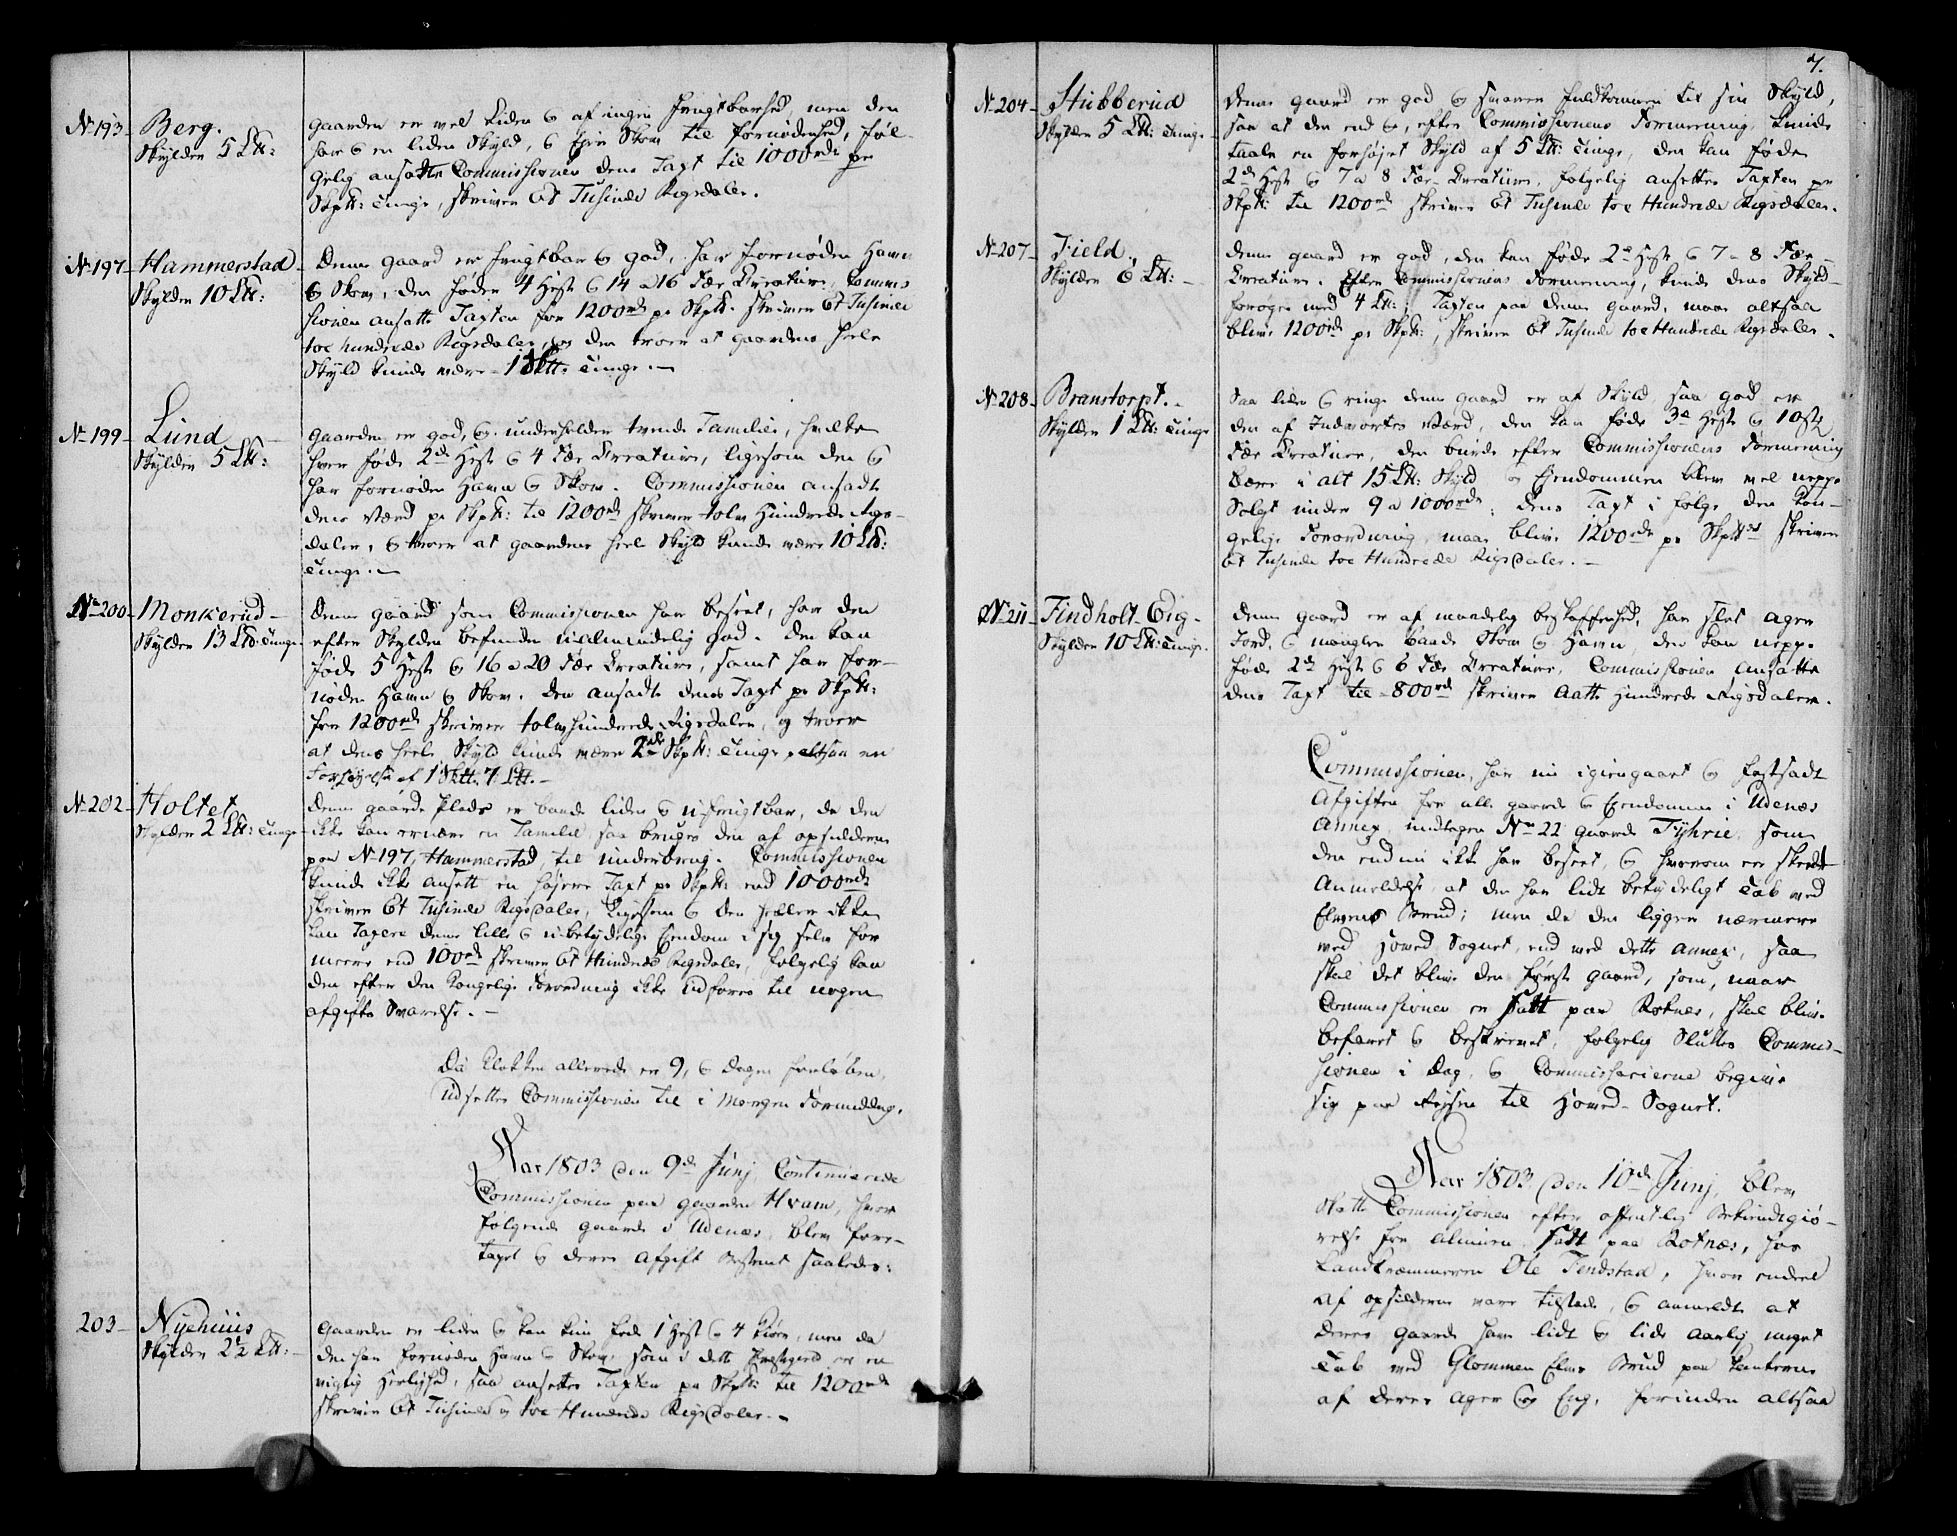 No 193 Berg.
Skylden 5 Lt:
Gaarden er vel liden og af ingen Frugtbarhed, men den
har og en liden Skyld, og Ejer Skov til fornødenhed, føl-
gelig ansatte Commissionen dens Taxt til 1000 rd pr
Skpt: Tunge, skriver Et Tusinde Rigsdaler.
No 197 Hammerstad
Skylden 10 Lt:
Denne gaard er frugtbar og god, har fornøden Havn
og Skov, den føder 4 Hest og 14 a 16 Fær Creature, Commis-
sionen ansatte Taxten for 1200 rd pr Skpt. skriver Et Tusinde
toe hundrede Rigsdaler, og den troer at gaardens heele
Skyld kunde være 1 Sktt: Tunge.
No 199 Lund
Skylden 5 Lt:
Gaarden er god, og underholder tvende Familier, hvilke
hver føde 2de Hest og 4 Fær Creature, ligesom den og
har fornøden Havn og Skov. Commissionen ansadte
dens Værd pr Skpt: til 1200 rd skriver tolv Hundrede Rigs-
daler, og troer at gaardens heele Skyld kunde være 10 Lt:
Tunge.
No 200 Monkerud
Skylden 13 Lt: Tunge
Denne gaard som Commissionen har beseet, har den
efter Skylden befunden ualmindelig god. den kan
føde 5 Hest og 16 a 20 Fær Creature, samt har for-
nøden Havn og Skov. den ansadte denes Taxt pr Skpt:
for 1200 rd skriver tolv Hundrede Rigsdaler, og troer
at dens heele Skyld kunde være 2de Skpt: Tunge, altsaa en
Forhøyelse af 1 Sktt. 7 Lt.
No 202 Holtet
Skylden 2 Lt: Tunge
Denne gaards Plads er baade liden og u-frugtbar, da den
ikke kan ernære en Familie, saa bruges den af opsidderen
paa No 197, Hammerstad, til underbrug. Commissionen
kunde ikke ansætt en højere Taxt pr Skpt: end 1000 rd
skriver Et Tusinde Rigsdaler, ligesom og den heller ikke
kan Taxere denne lille og u-betydelige Eiendom i sig selv for
meere end 100 rd skriver Et Hundrede Rigsdaler, følgelig kan
den efter den Kongelige Forordning ikke udføres til nogen
afgifts Svarelse.
Da Klokken allerede er 9, og Dagen forløben,
udsettes Commissionen til i Morgen Formiddag.
Aar 1803 den 9de Junj, Continuerede
Commissionen paa gaarden Hvam, hvor
følgende gaarde i Udenæs, blev fore-
taget og deres Afgift bestemt saaledes:
203 Nyehuus
Skylden 2½ Lt:
Gaarden er liden og kan kun føde 1 Hest og 4 Kiøer, men da
den har fornøden Havn og Skov, som i dette Præstegield er en
vigtig Herlighed, saa ansettes Taxten pr Skpt: til 1200 rd
skriver Et Tusinde og toe Hundrede Rigsdaler.
7.
No 204 Stubberud
Skylden 5 Lt: Tunge
Denne gaard er god og svarer fuldkommen til sin Skyld,
saa at den end og, efter Commissionens Formeening, kunde
taale en forhøjet Skyld af 5 Lt: Tunge, den kan føde
2de Hest og 7 a 8 Fær-Creature, følgelig ansettes Taxten pr
Skpt: til 1200 rd skriver Et Tusinde toe Hundrede Rigsdaler.
No 207 Field
Skylden 6 Lt:
Denne gaard er god, den kan føde 2de Hest og 7 - 8 Fær
Creature. Efter Commissionens Formeening, kunde dens Skyld
forøges med 4 Lt:; Taxten paa denne gaard, maae altsaa
blive 1200 rd pr Skpt:, skriver Et Tusinde toe Hundrede Rigsdaler.
No 208 Branstorpt.
Skylden 1 Lt: Tunge
Saa liden og ringe denne gaard er af Skyld, saa god er
den af Indvortes Værd, den kan føde 3de Hest og 10 stk
Fær Creature, den burde efter Commissionens Formeening
være i alt 15 Lt: Skyld og Eiendommen blev vel neppe
Solgt under 9 a 1000 rd. dens Taxt i følge den Kon-
gelige Forordning, maae blive 1200 rd pr Skpt skriver
Et Tusinde toe Hundrede Rigsdaler.
No 211 Findholt-Eig
Skylden 10 Lt: Tunge
Denne gaard er af maadelig beskaffenhed, har slet ager
Jord, og mangler baade Skov og Havn, den kan neppe
føde 2de Hest og 6 Fær Creature, Commissionen ansatte
dens Taxt til 800 rd skriver Aatte Hundrede Rigsdaler.
Commissionen, har nu igiengaaet og fastsadt
Afgiften for alle gaarde og Eiendomme i Udenæs
Annex, undtagen No 22 gaarde Fyhrie, som
den end nu ikke har beseet, og hvorom er skeedt
Anmeldelse, at den har lidt betydeligt Tab ved
Elvens Brud; men da den ligger nærmere
ved Hoved Sognet, end ved dette Annex, saa
skal det blive den første gaard, som, naar
Commissionen er satt paa Rotnes, skal blive
befaret og beskrevet, følgelig Sluttes Commis-
sionen i Dag, og Commissarierne begive
sig paa Reisen til Hoved-Sognet.
Aar 1803, den 10de Junj, blev
Skatte Commissionen efter offentlig Bekiendtgiø-
relse for almuen satt paa Rotnæs, hos
Landkræmmeren Ole Tendstad, hvor endeel
af opsidderne vare tilstæde, og anmeldte at
deres gaarde have lidt og lide aarlig meget
Tab ved Glommen Elvs Brud paa Kanterne
af deres Ager og Eng, forinden altsaa